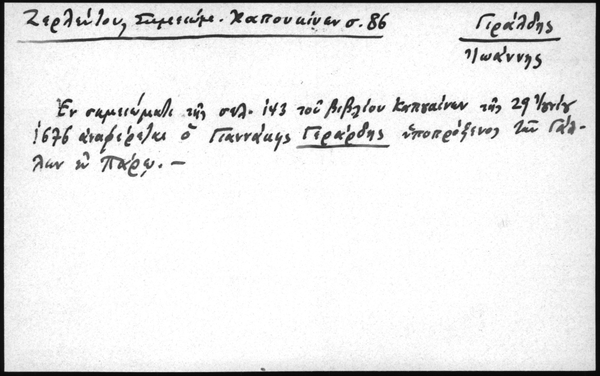 Ζερλέντου, Σημειώμ. Καπουκίνων σ. 86
Γεράλδης
Ἰωάννης
Ἐν σημειώματι τῆς σελ. 143 τοῦ βιβλίου Καπουκίνων τῆς 29
1676 ἀναφέρεται ὁ Γιαννάκης Γεράρδης ὑποπρόξενος τῶν Γάλ-
λων ἐν Πάρῳ. —